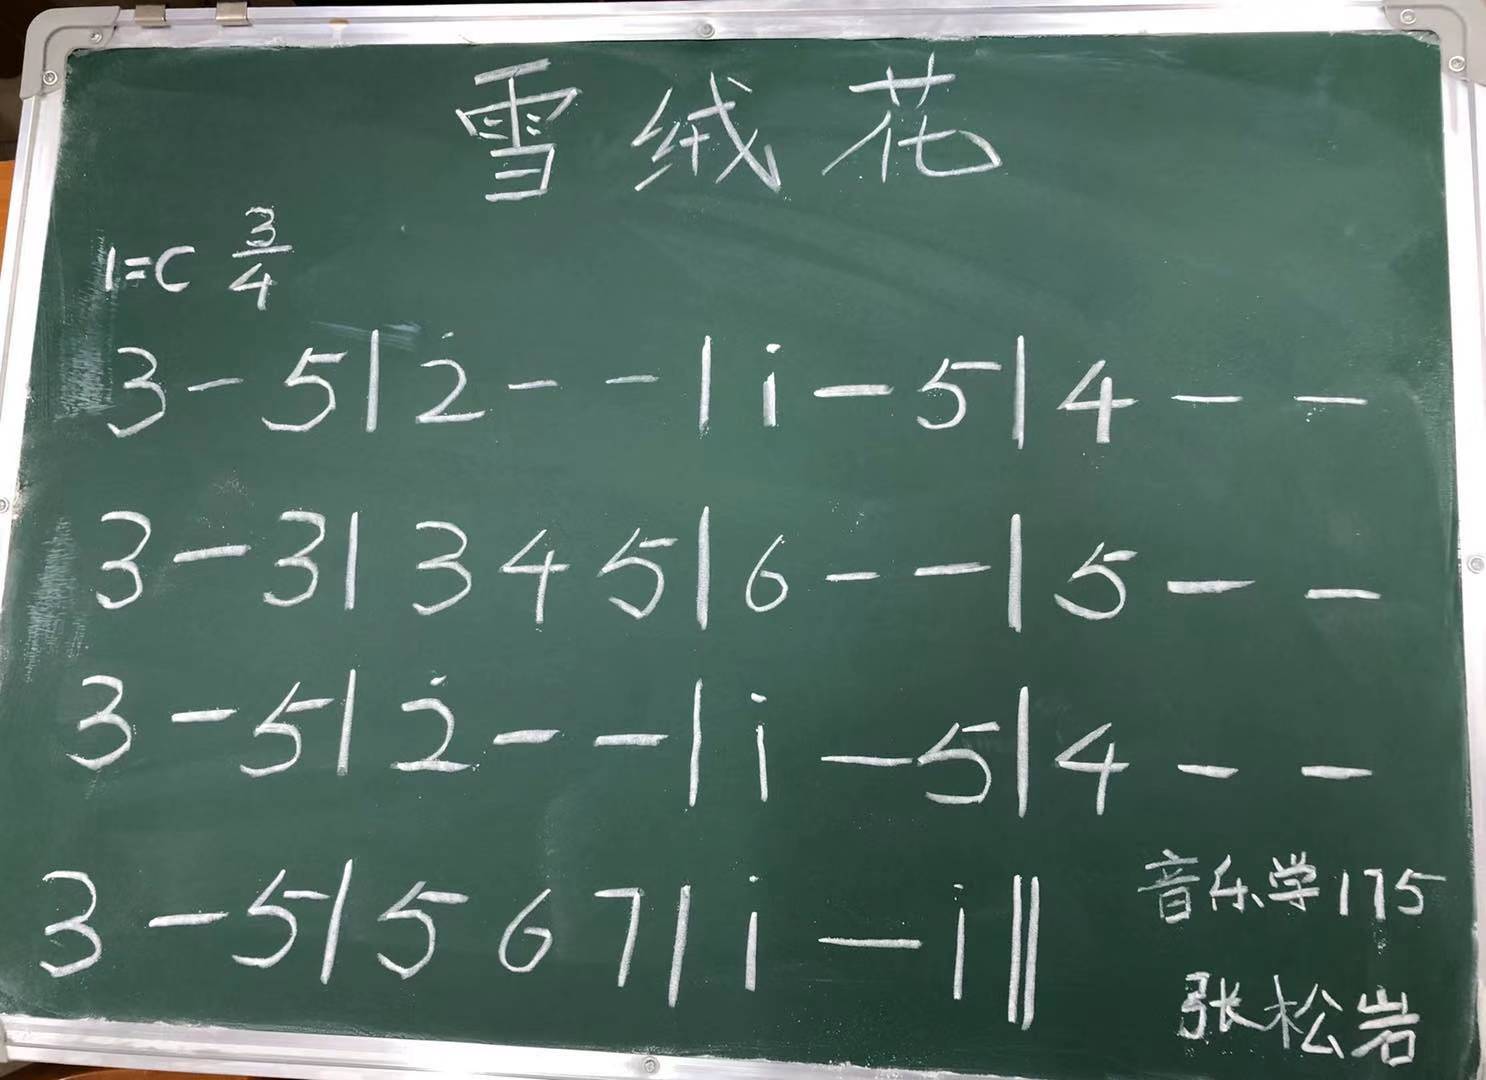 雪绒花
1=C 3/4
3 - 5 | 2̇ - - | i - 5 | 4 - -
3 - 3 | 3 4 5 | 6 - - | 5 - -
3 - 5 | 2̇ - - | i - 5 | 4 - -
3 - 5 | 5 6 7 | i - i ‖
音乐学175
张松岩